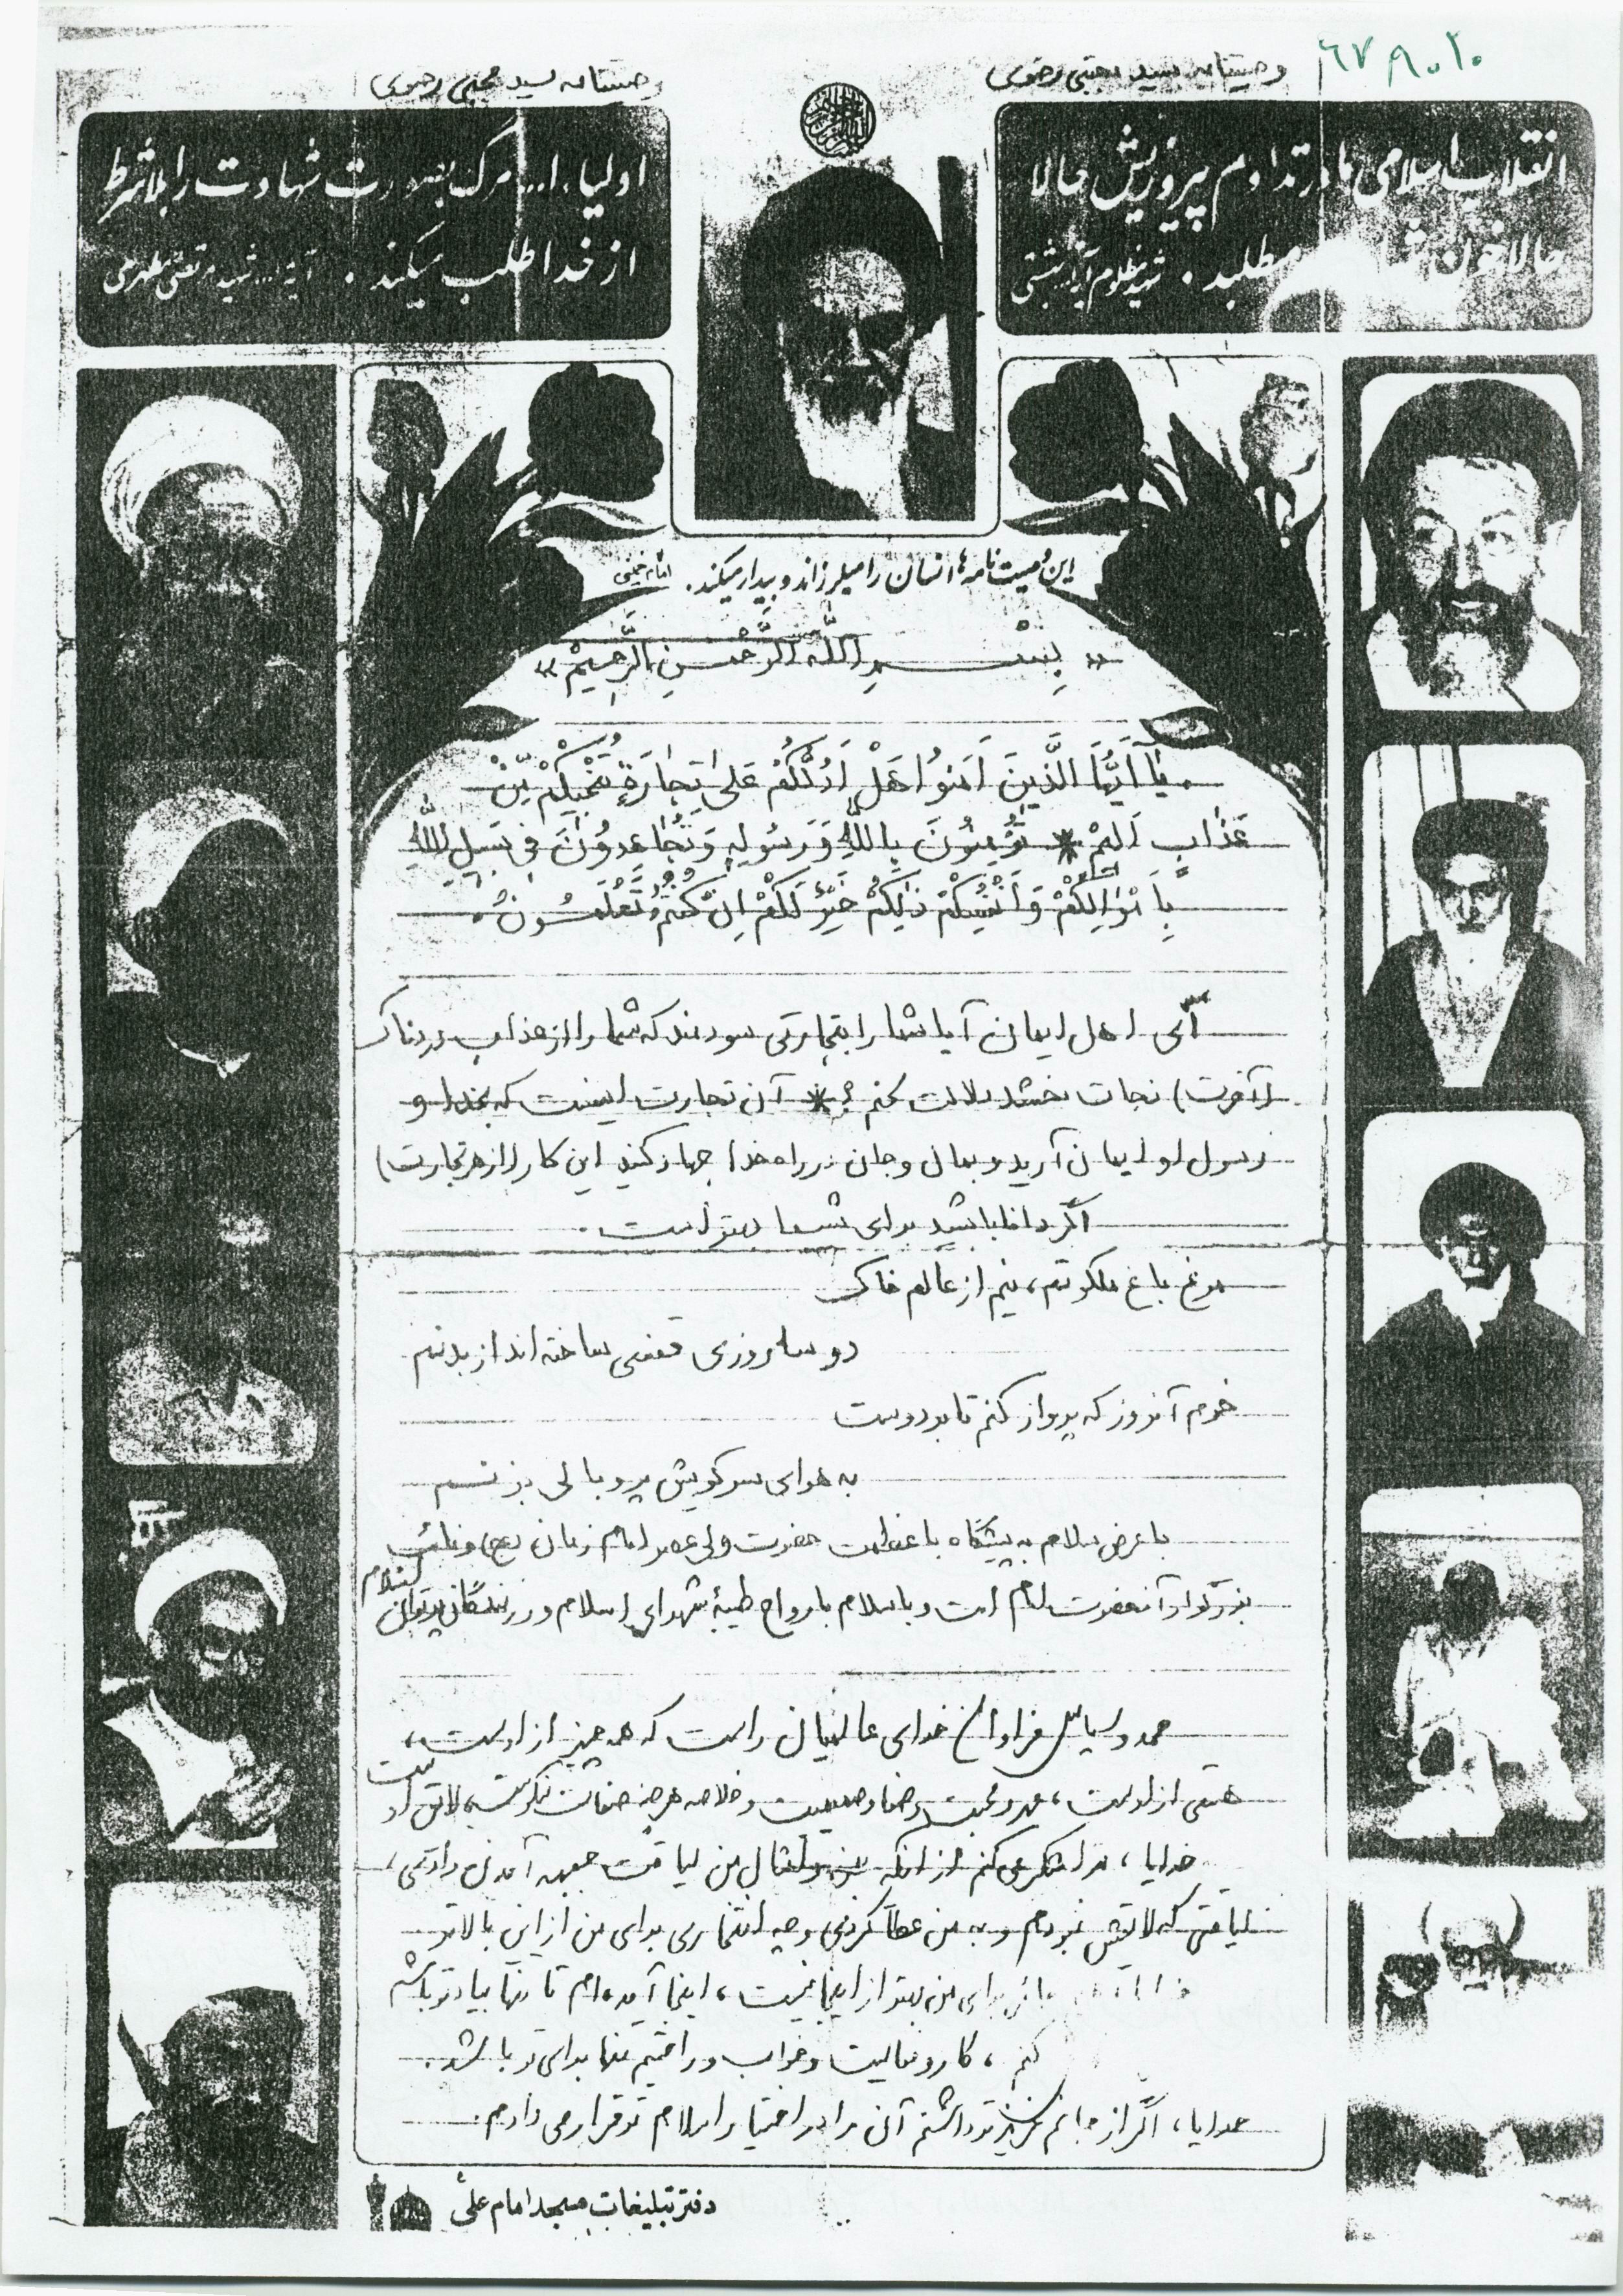 ۶۷۹۰۱۰
وصیتنامه سید مجتبی رضوی
وصیتنامه سید مجتبی رضوی
انقلاب اسلامی ما در تداوم پیروزیش حالا
حالا خون میطلبد . شهید مظلوم آیة ا... بهشتی
اولیاء ا... مرگ بصورت شهادت را بلاشرط
از خدا طلب میکنند . آیة ا... شهید مرتضی مطهری
این وصیت نامه ها انسان را میلرزاند و بیدار میکند . امام خمینی
« بِسْمِ اللَّهِ الرَّحْمنِ الرَّحِیمْ »
یا اَیُّهَا الَّذینَ آمَنوُا هَلْ اَدُلُّکُمْ عَلی تِجارَةٍ تُنْجیکُمْ مِنْ
عَذابٍ اَلیمْ * تُؤْمِنُونَ بِاللّهِ وَ رَسُولِهِ وَ تُجاهِدوُنَ فی سَبیلِ اللّهِ
بِاَمْوالِکُمْ وَ اَنْفُسِکُمْ ذلِکُمْ خَیْرٌ لَکُمْ اِنْ کُنْتُمْ تَعْلَمُونْ .
ای اهل ایمان آیا شما را بتجارتی سودمند که شما را از عذاب دردناک
(آخرت) نجات بخشد دلالت کنم ؟ * آن تجارت اینست که بخدا و
رسول او ایمان آرید و بمال و جان در راه خدا جهاد کنید این کار (از هر تجارت)
اگر دانا باشید برای شما بهتر است .
مرغ باغ ملکوتم ، نیم از عالم خاک
دو سه روزی قفسی ساخته اند از بدنم
خرم آنروز که پرواز کنم تا بر دوست
به هوای سر کویش پر و بالی بزنم
با عرض سلام به پیشگاه با عظمت حضرت ولی عصر امام زمان (عج) و نائب
بزرگوار آنحضرت امام امت و با سلام بارواح طیبه شهدای اسلام و رزمندگان پرتوان اسلام
حمد و سپاس فراوان خدای عالمیان راست که همه چیز از اوست ،
هستی از اوست ، مهر و محبت و صفا و صمیمیت و خلاصه هر چه صفات نیکوست ، لایق اوست
خدایا ، ترا شکر می کنم از آنکه بمن و امثال من لیاقت جبهه آمدن دادی ،
لیاقتی که لایقش نبودم و به من عطا کردی و چه افتخاری برای من از این بالاتر
برای من بهتر از اینجا نیست ، اینجا آمده ام تا تنها بیاد تو باشم
کنم ، کار و فعالیت و خواب و راحتیم تنها برای تو باشد .
خدایا ، اگر از جانم عزیزتر داشتم آن را در اختیار اسلام تو قرار می دادم .
دفتر تبلیغات مسجد امام علی